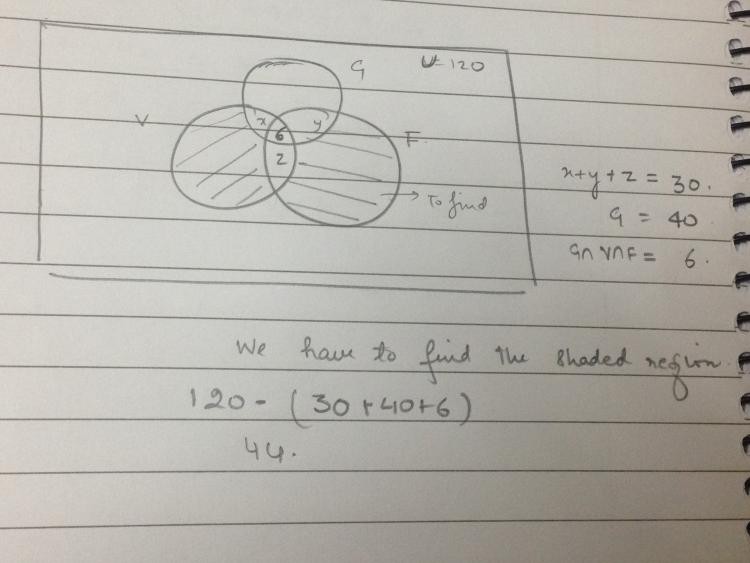 G U=120
V x y F
6
z
→ To find
x+y+z = 30.
G = 40
G∩V∩F = 6.
We have to find the shaded region.
120 - (30+40+6)
44.